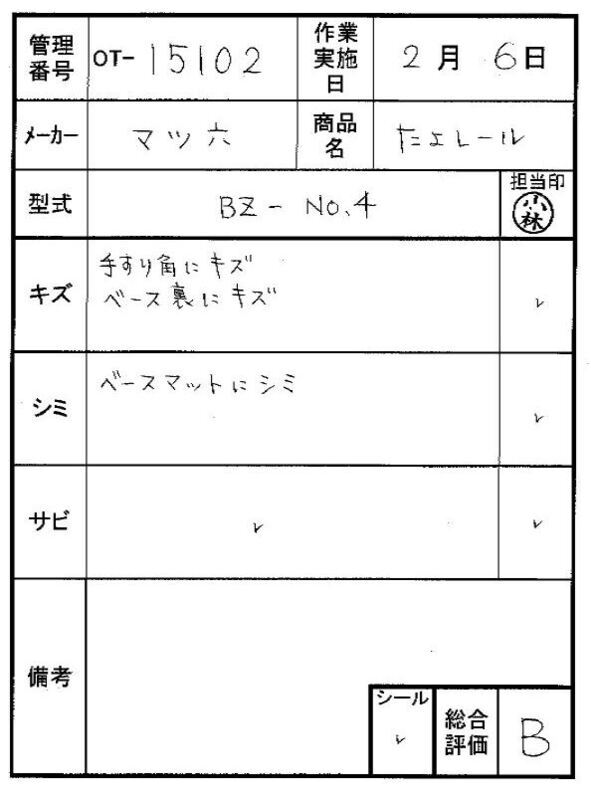 管理番号 OT-15102 作業実施日 2月6日
メーカー マツ六 商品名 たよレール
型式 BZ-No.4 担当印 小林
キズ 手すり角にキズ
ベース裏にキズ ✓
シミ ベースマットにシミ ✓
サビ ✓ ✓
備考
シール ✓ 総合評価 B